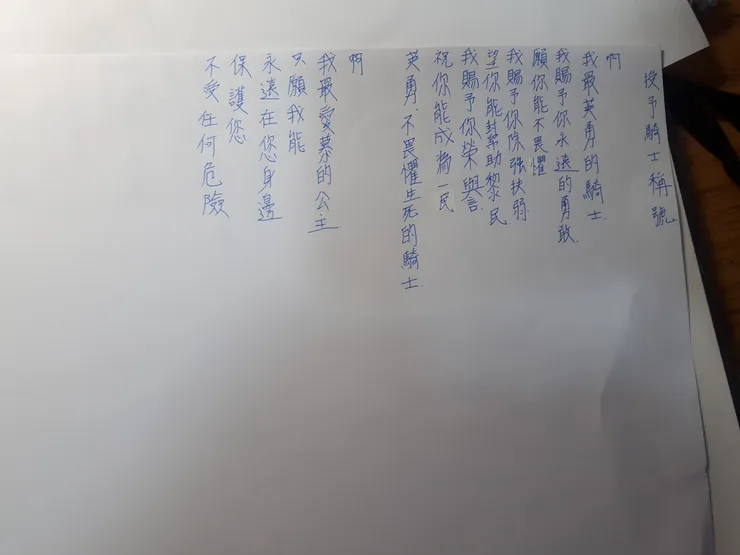 授予騎士稱號
啊
我最英勇的騎士
我賜予你永遠的勇敢
願你能不畏懼
我賜予你除強扶弱
望你能幫助黎民
我賜予你榮與言
祝你能成為一民
英勇、不畏懼生死的騎士
啊
我最愛慕的公主
只願我能
永遠在您身邊
保護您
不受任何危險